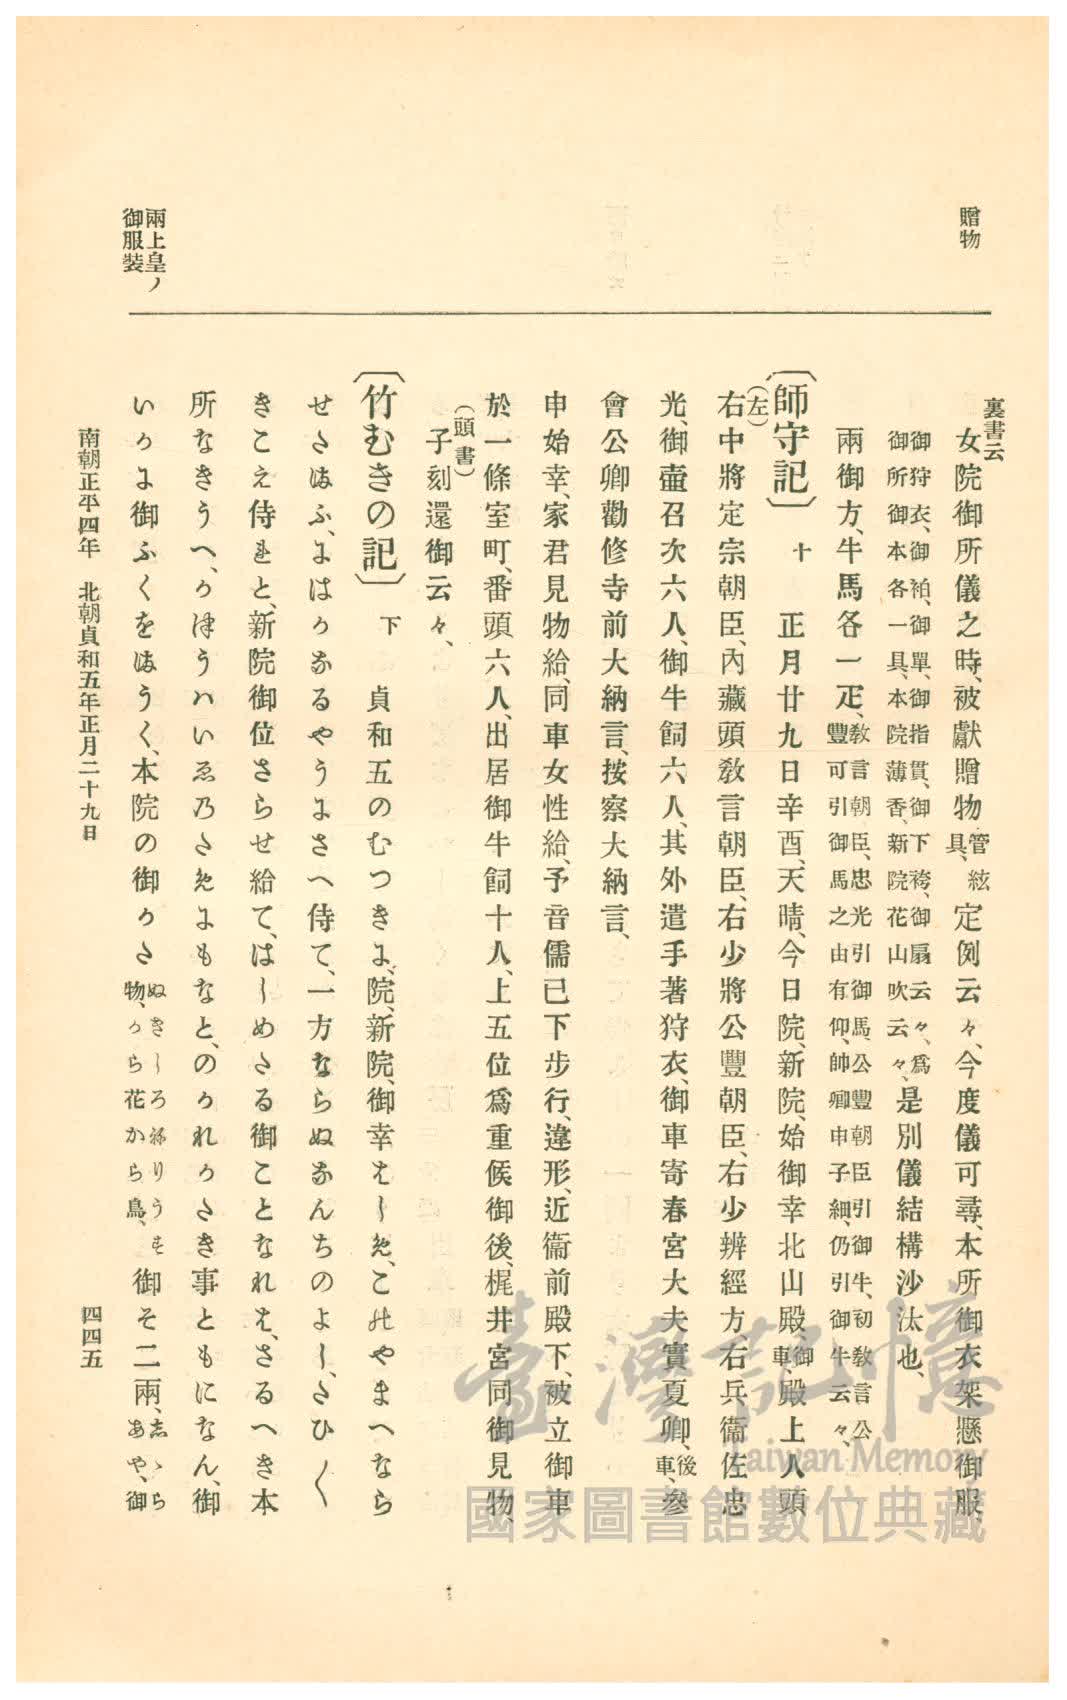 贈物
兩上皇ノ
御服裝
裏書云
女院御所儀之時、被獻贈物管絃具、定例云々、今度儀可尋、本所御衣架懸御服、
御狩衣、御袙、御單、御指貫、御下袴、御扇云々、爲
御所御本各一具、本院薄香、新院花山吹云々、是別儀結構沙汰也、
兩御方、牛馬各一疋、教言朝臣、忠光引御馬、公豐朝臣引御牛、初教言公
豐可引御馬之由有仰、帥卿申子細、仍引御牛云々、
〔師守記〕十 正月廿九日辛酉、天晴、今日院、新院、始御幸北山殿、御車、殿上人頭
(左)
右中將定宗朝臣、內藏頭教言朝臣、右少將公豐朝臣、右少辨經方、右兵衞佐忠
光、御壺召次六人、御牛飼六人、其外遣手著狩衣、御車寄春宮大夫實夏卿、後車、參
會公卿勸修寺前大納言、按察大納言、
申始幸、家君見物給、同車女性給、予音儒已下步行、違形、近衞前殿下、被立御車
於一條室町、番頭六人、出居御牛飼十人、上五位爲重候御後、梶井宮同御見物、
(頭書)
子刻還御云々、
〔竹むきの記〕下 貞和五のむつきよ、院、新院、御幸えしめ、こせやまへなら
せたまふ、よはかなるやうよさへ侍て、一方ならぬなんちのよし、たひ〱
きこえ侍れと、新院御位さらせ給て、はしめたる御ことなれえ、さるへき本
所なきうへ、かほうハいゑ乃ためよもなと、のかれかたき事ともになん、御
いかよ御ふくをまうく、本院の御かた ぬきしろねりうす物、から花から鳥、 御そ二兩、志ゝらあや、御
南朝正平四年 北朝貞和五年正月二十九日
四四五
臺灣記憶
Taiwan Memory
國家圖書館數位典藏